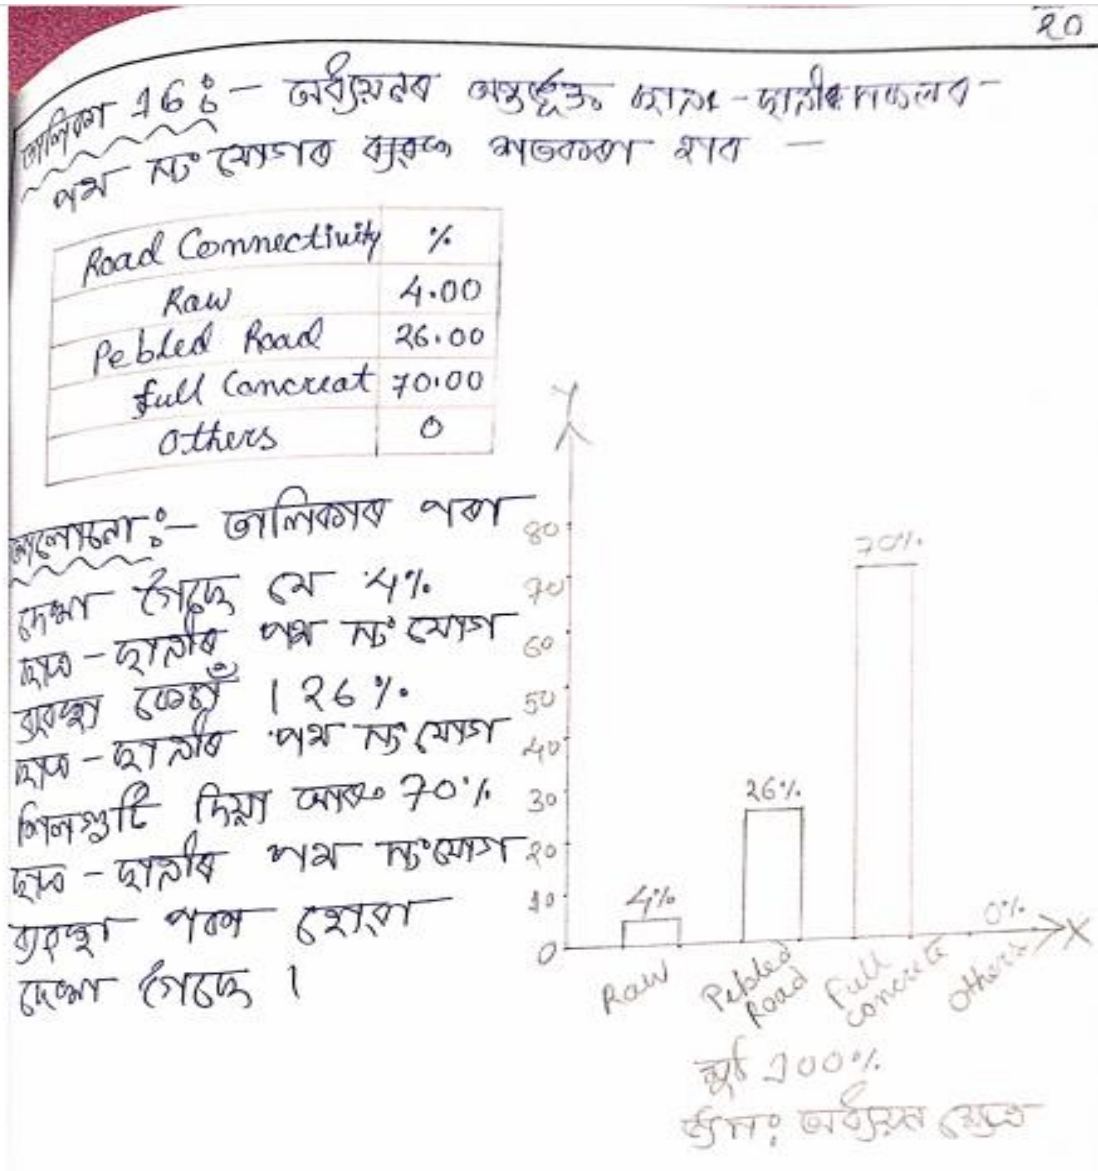 20
তালিকা 16 :- অধ্যয়নৰ অন্তৰ্ভূক্ত ছাত্ৰ-ছাত্ৰীৰ সকলৰ
পথ সংযোগৰ ব্যৱস্থাৰ শতকৰা হাৰ —
Road Connectivity %
Raw 4.00
Pebled Road 26.00
full Concreat 70.00
Others 0
আলোচনা :- তালিকাৰ পৰা
দেখা গৈছে যে 4%
ছাত্ৰ-ছাত্ৰীৰ পথ সংযোগ
ব্যৱস্থা কেচাঁ। 26%
ছাত্ৰ-ছাত্ৰীৰ পথ সংযোগ
শিলগুটি দিয়া আৰু 70%
ছাত্ৰ-ছাত্ৰীৰ পথ সংযোগ
ব্যৱস্থা পকা হোৱা
দেখা গৈছে।
Y
80
70
60
50
40
30
20
10
0
4%
26%
70%
0%
X
Raw
Pebled Road
Full concrete
Others
100%
অধ্যয়ন ক্ষেত্ৰ